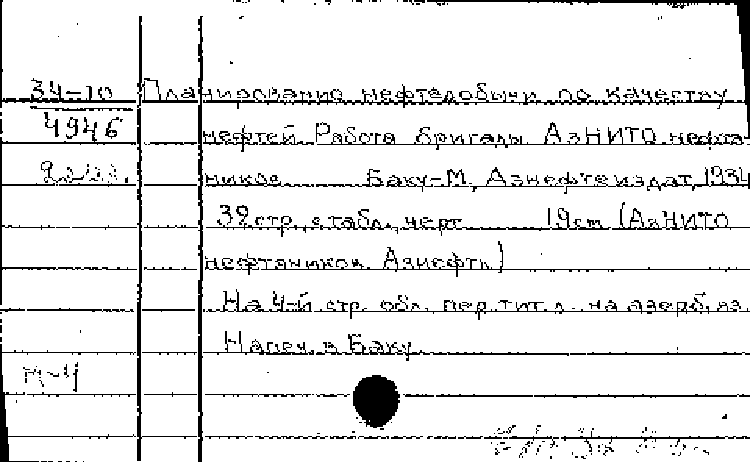 34-10 Планирование нефтедобычи по качеству
4946 нефтей. Работа бригады АзНИТО нефтя-
2 экз. ников. Баку-М., Азнефтеиздат, 1934
32 стр. с табл., черт. 19 cm (АзНИТО
нефтяников. Азнефть)
На 4-й стр. обл. пер. тит. л. на азерб. яз.
Напеч. в Баку.